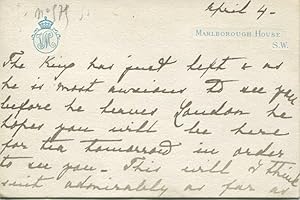 April 4-
MARLBOROUGH HOUSE
S.W.
The King has just left & as
he is most anxious to see you
before he leaves London he
hopes you will be here
for tea tomorrow in order
to see you - This will I think
suit admirably as far as